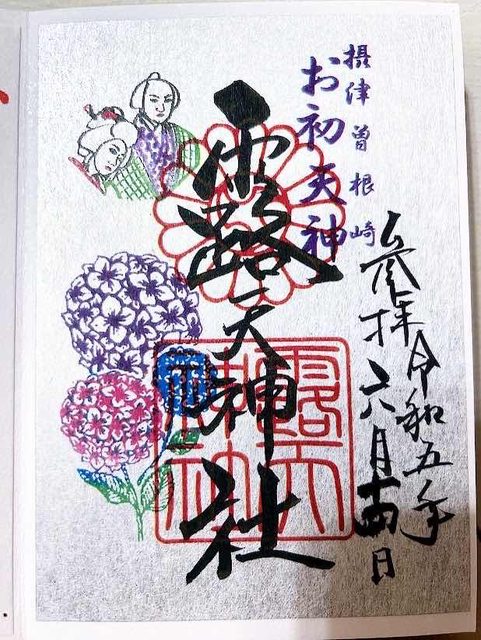 摂津曽根崎
お初天神
参拝
令和五年
六月十四日
露天神社
露天
神社